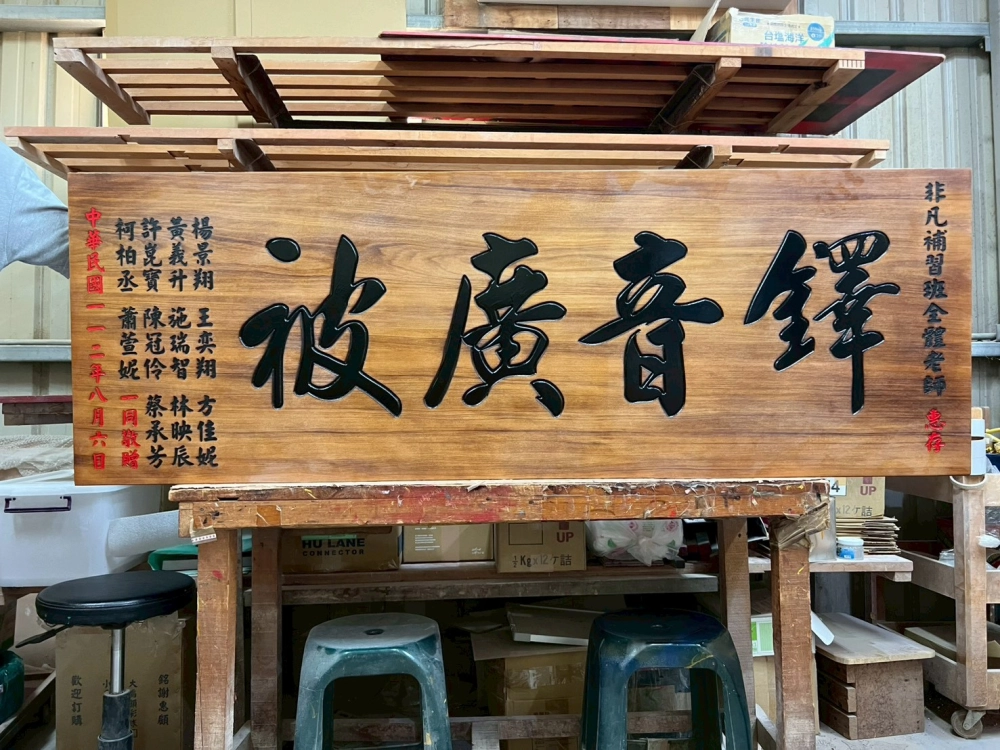 非凡補習班全體老師 惠存
鐸音廣被
楊景翔 王奕翔 方佳妮
黃義升 施瑞智 林映辰
許崑寶 陳冠伶 蔡承芳
柯柏丞 蕭萱妮 一同敬贈
中華民國一一二年八月六日
台塩海洋
HU LANE
CONNECTOR
UP
½Kg×12ケ詰
4
UP
×12ケ詰
銘謝惠顧
歡迎訂購